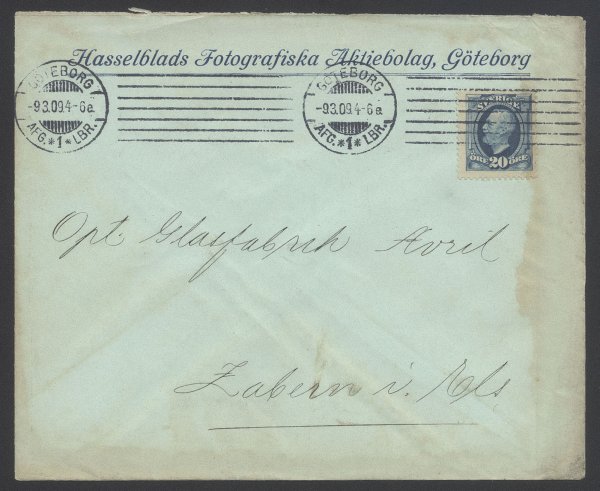 Hasselblads Fotografiska Aktiebolag, Göteborg
GÖTEBORG
-9.3.09.4-6e.
AFG. *1* LBR.
GÖTEBORG
-9.3.09.4-6e.
AFG. *1* LBR.
SVERIGE
ÖRE 20 ÖRE
Opt. Glasfabrik Avril
Zabern i. Els